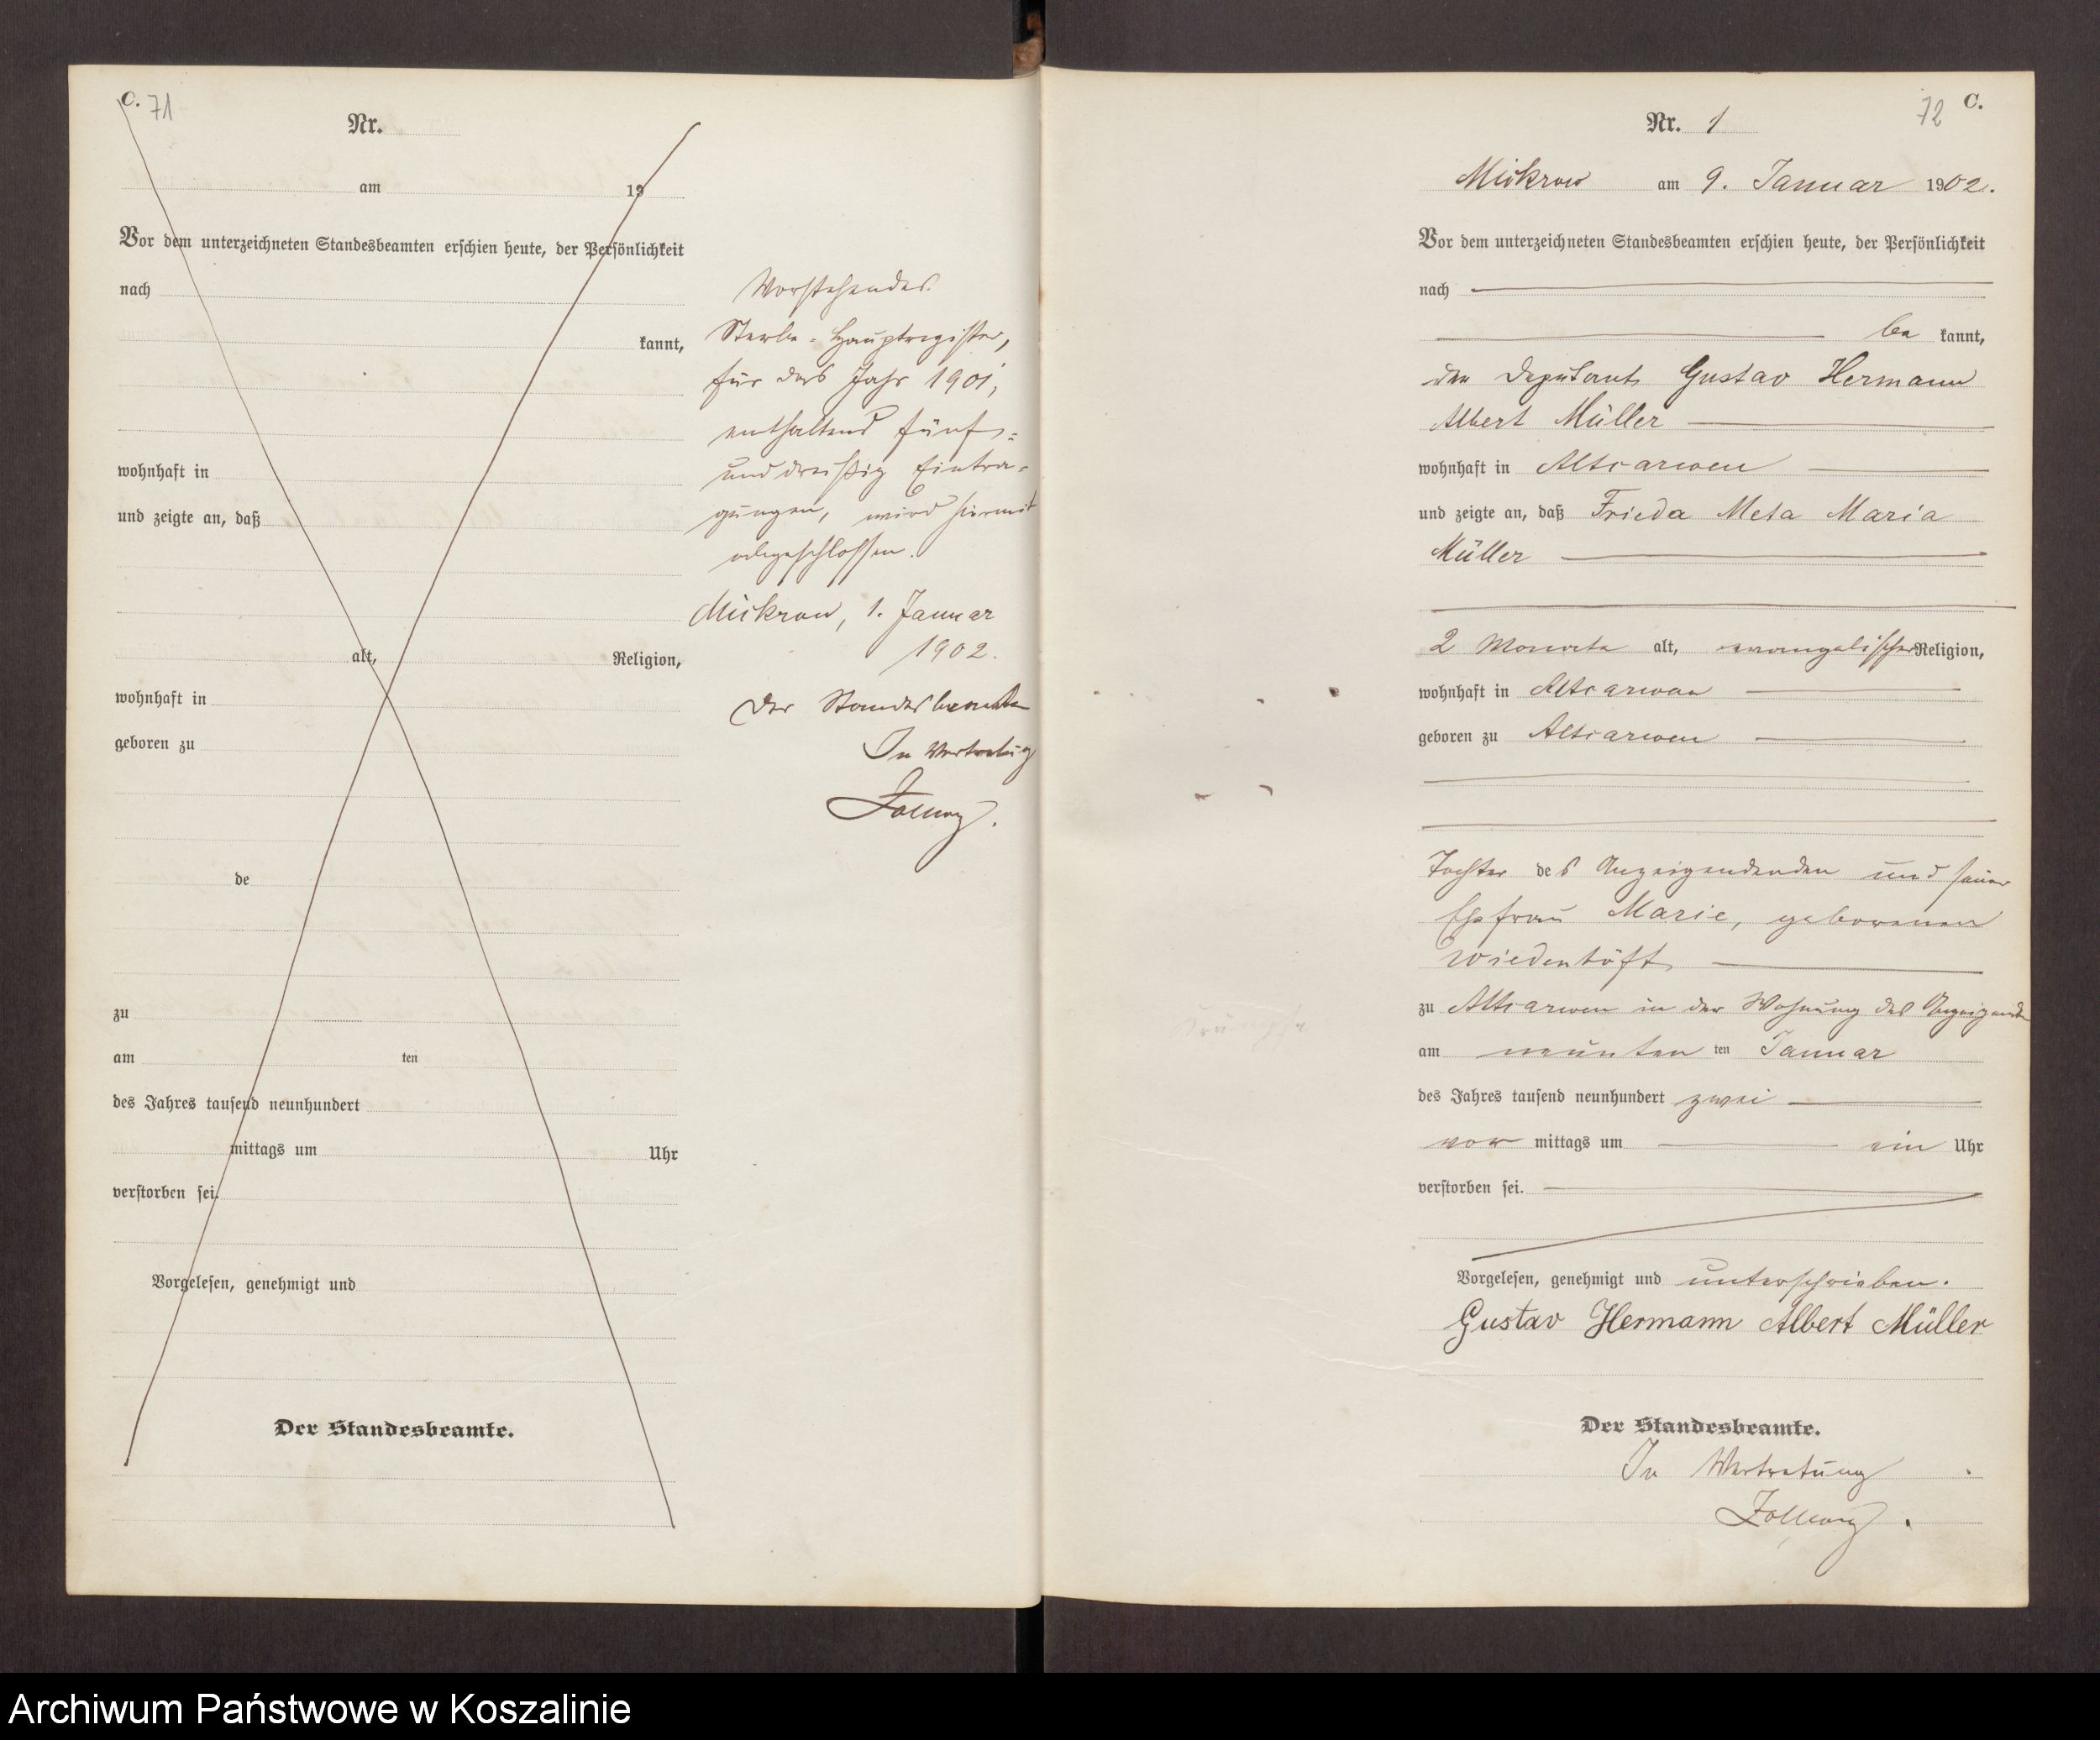 C. 71
Nr.
am 19
Vor dem unterzeichneten Standesbeamten erschien heute, der Persönlichkeit
nach
kannt,
wohnhaft in
und zeigte an, daß
alt, Religion,
wohnhaft in
geboren zu
de
zu
am ten
des Jahres tausend neunhundert
mittags um Uhr
verstorben sei.
Vorgelesen, genehmigt und
Der Standesbeamte.
Vorstehendes
Sterbe-Hauptregister,
für das Jahr 1901,
enthaltend fünf-
unddreißig Eintra-
gungen, wird hiermit
abgeschlossen.
Mickrow, 1. Januar
1902.
Der Standesbeamte
In Vertretung
72 C.
Nr. 1
Mickrow am 9. Januar 1902.
Vor dem unterzeichneten Standesbeamten erschien heute, der Persönlichkeit
nach
be kannt,
der Deputant Gustav Hermann
Albert Müller
wohnhaft in Altcarwen
und zeigte an, daß Frieda Meta Maria
Müller
2 Monate alt, evangelischer Religion,
wohnhaft in Altcarwen
geboren zu Altcarwen
Tochter des Anzeigendenden und seiner
Ehefrau Marie, geborenen
Wiedenhöft
zu Altcarwen in der Wohnung des Anzeigenden
am neunten ten Januar
des Jahres tausend neunhundert zwei
vor mittags um ein Uhr
verstorben sei.
Vorgelesen, genehmigt und unterschrieben.
Gustav Hermann Albert Müller
Der Standesbeamte.
In Vertretung
Archiwum Państwowe w Koszalinie